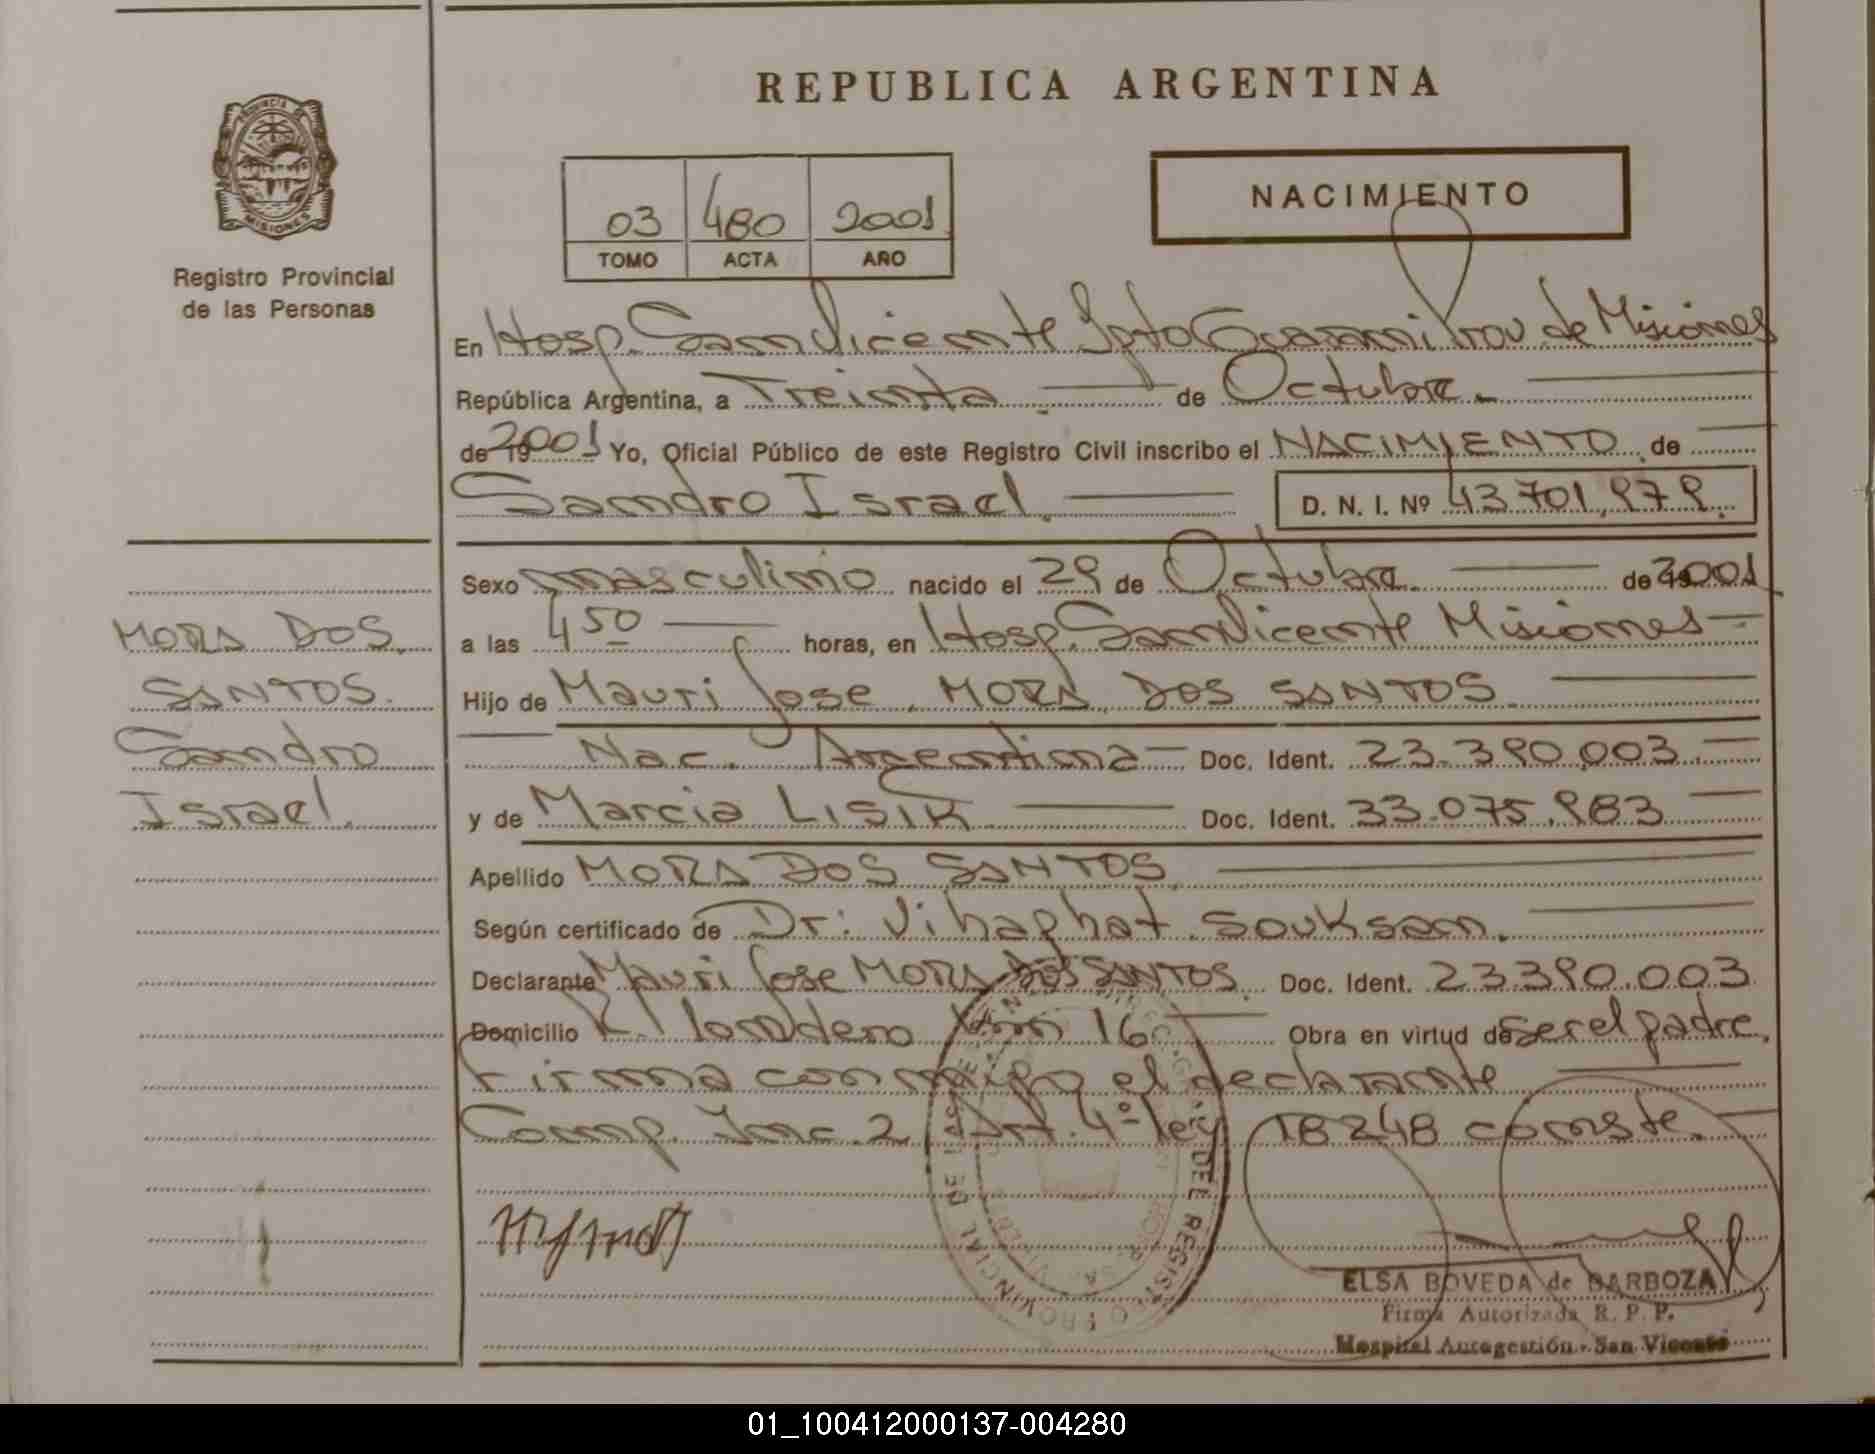 REPUBLICA ARGENTINA
PROVINCIA DE
MISIONES
Registro Provincial
de las Personas
03 480 2001
TOMO ACTA AÑO
NACIMIENTO
En Hosp. San Vicente Dpto Guarani Prov de Misiones
República Argentina, a Treinta de Octubre.
de 19 2001 Yo, Oficial Público de este Registro Civil inscribo el NACIMIENTO de
Sandro Israel. D. N. I. Nº 43.701.979.
Sexo masculino nacido el 29 de Octubre. de 19 2001
a las 4 50 horas, en Hosp. San Vicente Misiones
Hijo de Mauri Jose MORA DOS SANTOS
Nac. Argentina Doc. Ident. 23.390.003.
y de Marcia LISIK Doc. Ident. 33.075.983
Apellido MORA DOS SANTOS
Según certificado de Dr: Vihaphat Souksam.
Declarante Mauri Jose MORA DOS SANTOS. Doc. Ident. 23390.003
Domicilio Km 16 Obra en virtud de ser el padre.
Firma conmigo el declarante
Comp. Inc. 2 Art. 4º ley 18248 conste.
MORA DOS
SANTOS.
Sandro
Israel.
PROVINCIAL DEL REGISTRO
ELSA BOVEDA de BARBOZA
Firma Autorizada R. P. P.
Hospital Autogestión - San Vicente
01_100412000137-004280